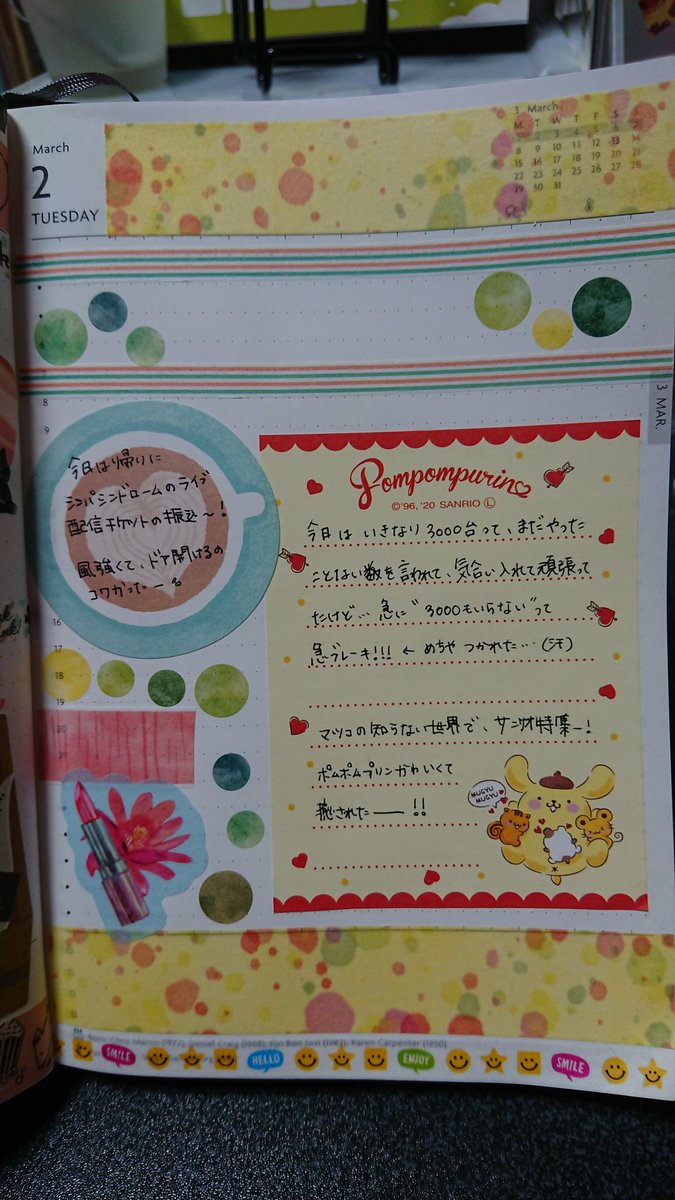 March
2
TUESDAY
3 March
M T W T F S S
1 2 3 4 5 6 7
8 9 10 11 12 13 14
15 16 17 18 19 20 21
22 23 24 25 26 27 28
29 30 31
7
8
9
3 MAR.
今日は帰りに
シンパシンドロームのライブ
配信チケットの振込〜!
風強くて、ドア開けるの
コワかったー
16
17
18
19
20
21
Pompompurin
©'96,'20 SANRIO Ⓛ
今日は いきなり 3000台って、まだやった
ことない数を言われて、気合い入れて頑張って
たけど… 急に"3000もいらない"って
急ブレーキ!!! ← めちゃ つかれた…(汗)
マツコの知らない世界で、サンリオ特集ー!
ポムポムプリンかわいくて
癒された——!!
MUGYU
MUGYU
Born: Chris Martin (1977), Daniel Craig (1968), Jon Bon Jovi (1962), Karen Carpenter (1950)
SMILE HELLO ENJOY SMILE